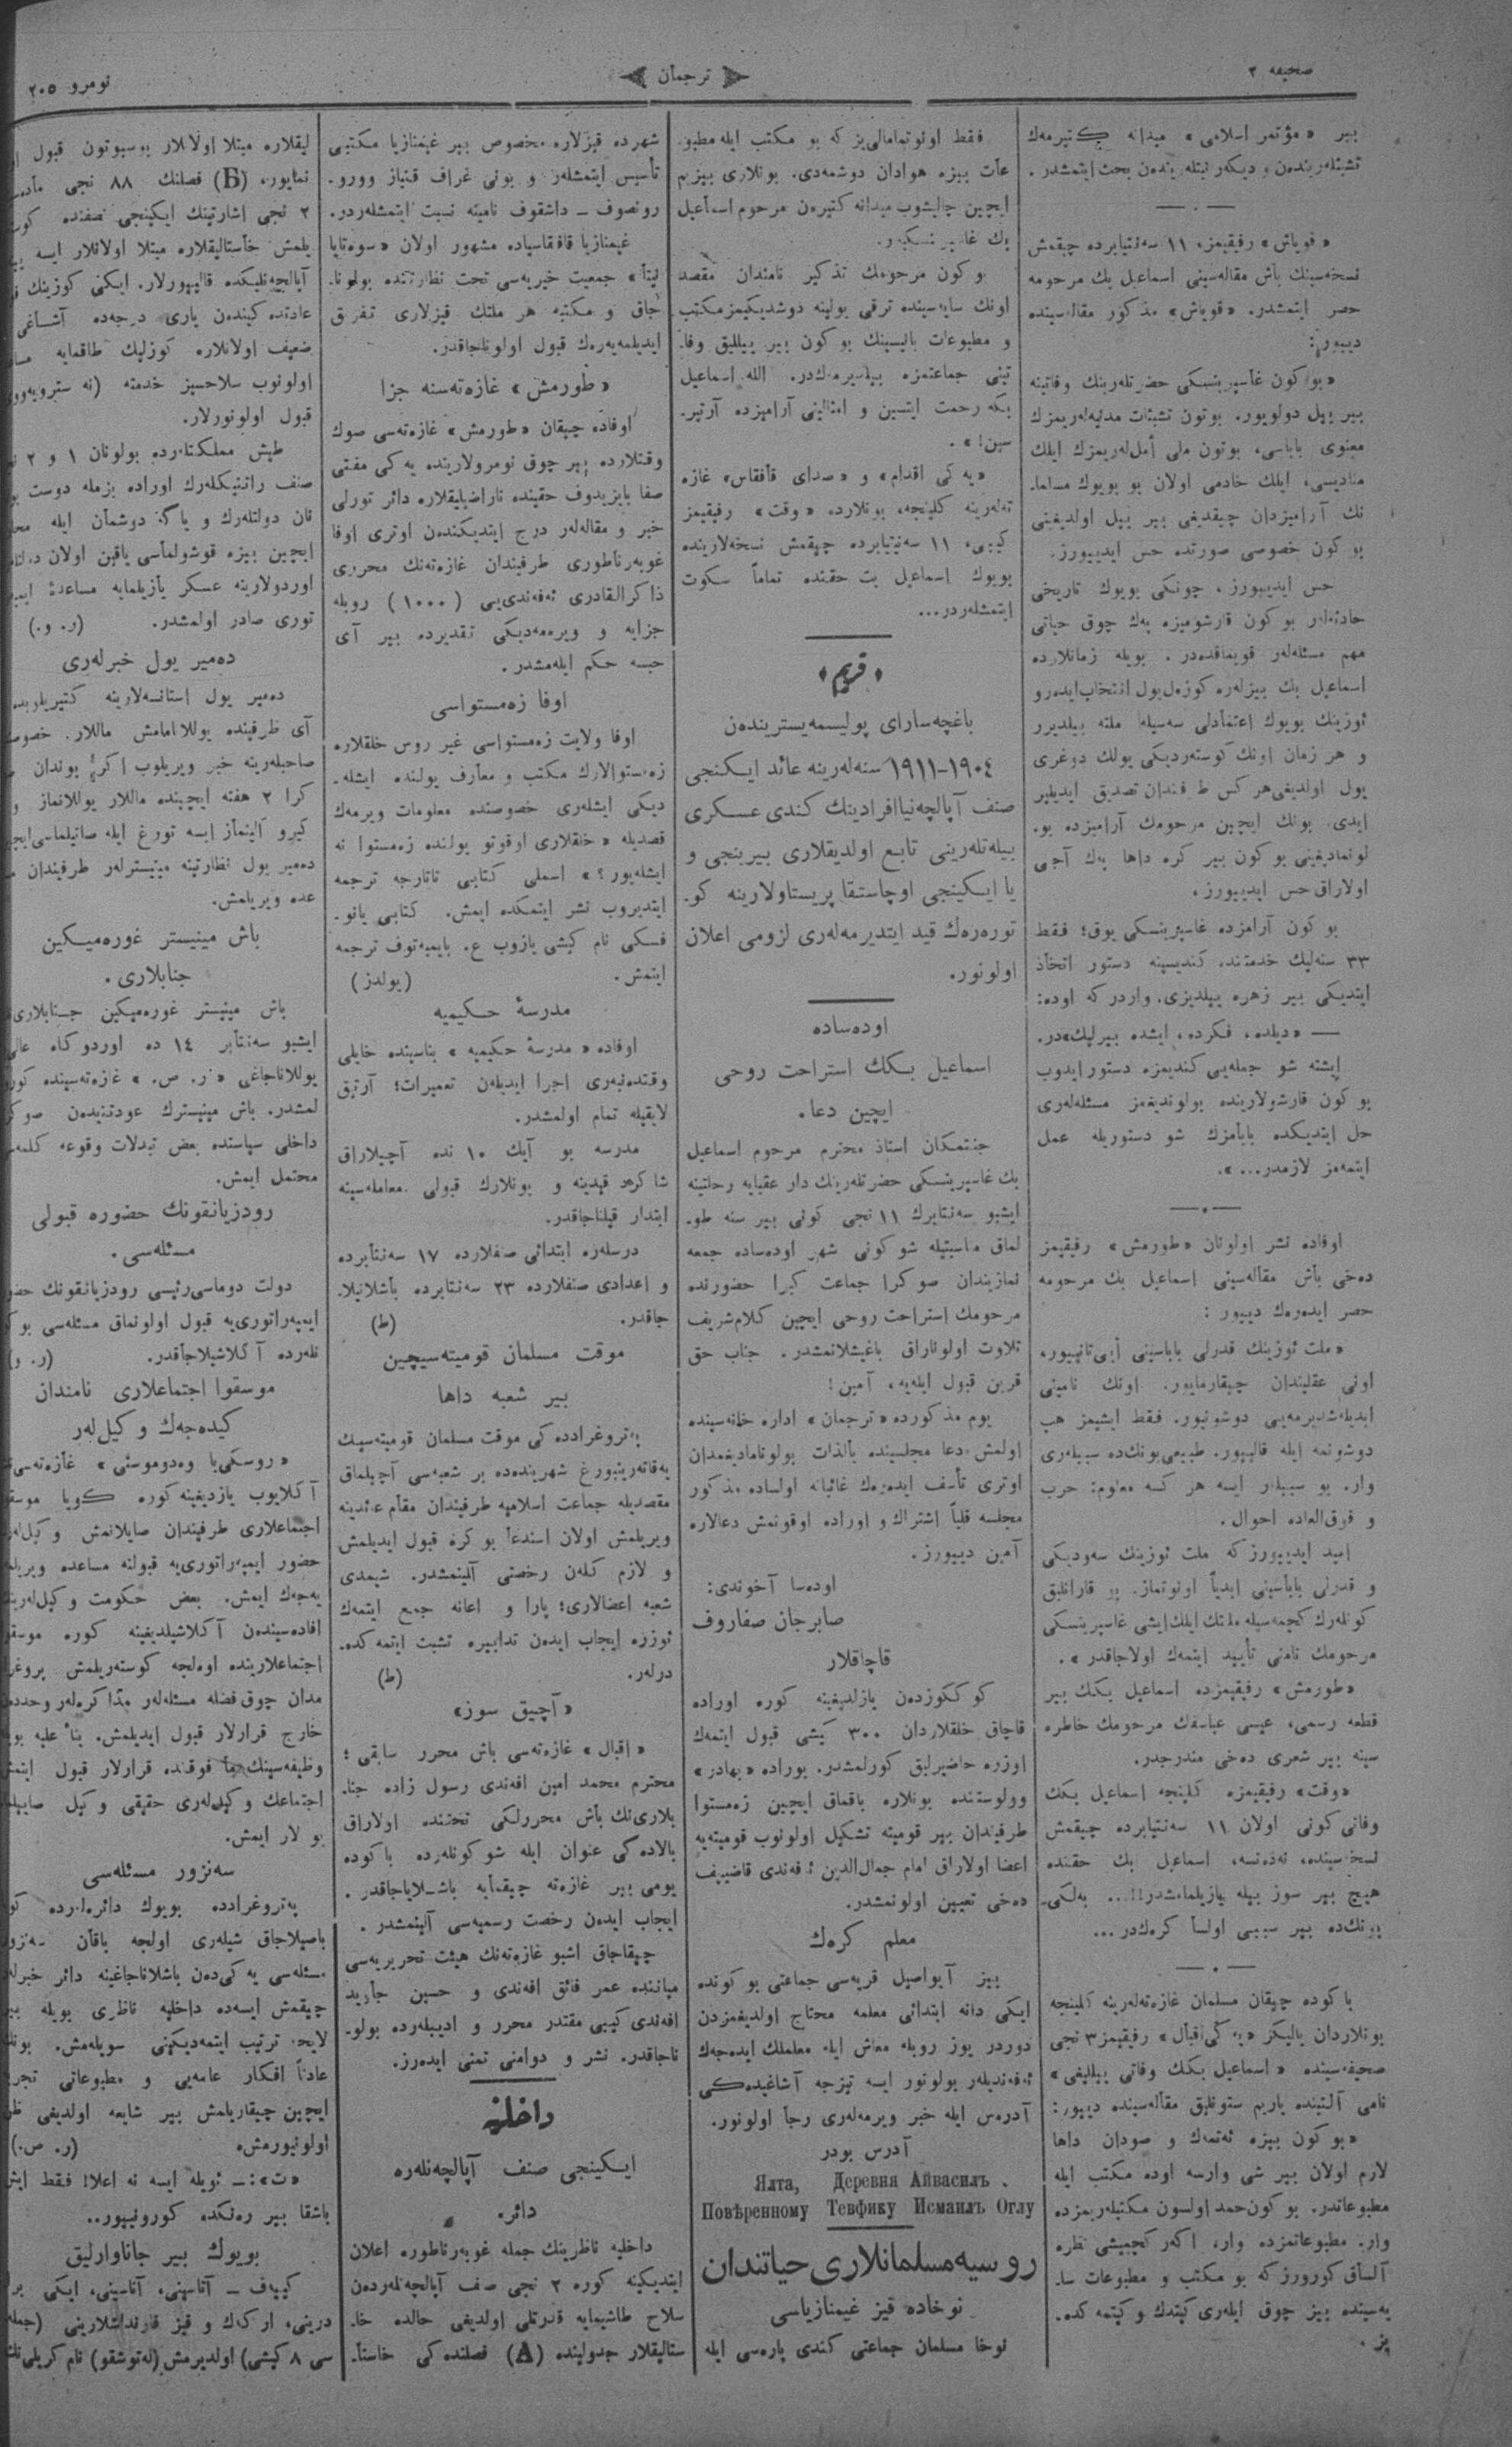 صحیفه ۲
ترجمان
نومرو ۲۰۵
بیر «مؤتمر اسلامی» میدانه کتیرمەك
تشبثلەریندەن و دیکەر نیتلەریندەن بحث ایتمشدر.
«قویاش» رفیقیمز، ۱۱ سەنتیابرده چیقمش
نسخەسینك باش مقالەسینی اسماعیل بك مرحومه
حصر ایتمشدر. «قویاش» مذکور مقالەسینده
دییور:
«بو کون غاسپرینسکی حضرتلەرینك وفاتینه
بیر ییل دولویور. بوتون تشبثات مدنیەلەریمزك
معنوی باباسی، بوتون ملی أمللەریمزك ایلك
منادیسی، ایلك خادمی اولان بو بویوك مسلما-
نك آرامیزدان چیقدیغی بیر ییل اولدیغینی
بو کون خصوصی صورتده حس ایدییورز.
حس ایدییورز، چونکی بویوك تاریخی
حادثەلەر بو کون قارشومیزه پەك چوق حیاتی
مهم مسئلەلەر قویماقدەدر. بویله زمانلارده
اسماعیل بك بیزلەره کوزەل یول انتخاب ایدەرو
ئوزینك بویوك اعتمادلی سەسیله ملته بیلدیرر
و هر زمان اونك کوستەردیکی یولك دوغری
یول اولدیغی هر کس طرفندان تصدیق ایدیلیر
ایدی. بونك ایچین مرحومك آرامیزده بو-
لونمادیغینی بو کون بیر کره داها پەك آجی
اولاراق حس ایدییورز.
بو کون آرامزده غاسپرینسکی یوق؛ فقط
۳۳ سنەلیك خدمتنده کندیسینه دستور اتخاذ
ایتدیکی بیر زهره ییلدیزی، واردر که اوده:
— «دیلده، فکرده، ایشده بیرلیك»در.
ایشته شو جملەیی کندیمزه دستور ایدوب
بو کون قارشولارینده بولوندیغمز مسئلەلەری
حل ایتدیکده بابامزك شو دستوریله عمل
ایتمەمز لازمدر...».
اوفاده نشر اولونان «طورمش» رفیقیمز
دەخی باش مقالەسینی اسماعیل بك مرحومه
حصر ایدەرەك دییور:
«ملت ئوزینك قدرلی باباسینی أیی تانییور،
اونی عقلیندان چیقارمایور. اونك نامینی
ابدیلەشدیرمەیی دوشونیور. فقط ایشیمز هپ
دوشونمه ایله قالییور. طبیعی بونكده سببلەری
وار. بو سببلەر ایسه هر کسه معلوم: حرب
و فوق العاده احوال.
امید ایدییورز که ملت ئوزینك سەودیکی
و قدرلی باباسینی ابدیاً اونوتماز. بو قارانلیق
کونلەرك کچمەسیله ملتك ایلك ایشی غاسپرینسکی
مرحومك نامنی تأیید ایتمەك اولاجاقدر».
«طورمش» رفیقیمزده اسماعیل بكك بیر
قطعه رسمی، عیسی عباسفك مرحومك خاطره
سینه بیر شعری دەخی مندرجدر.
«وقت» رفیقیمزه کلینجه اسماعیل بكك
وفاتی کونی اولان ۱۱ سەنتیابرده چیقمش
نسخەسینده، نەدەنسه، اسماعیل بك حقنده
هیچ بیر سوز بیله یازیلمامشدر!!... بەلکی
بونكده بیر سببی اولسا کرەكدر...
باکوده چیقان مسلمان غازەتەلەرینه کلینجه
بونلاردان یالیکز «یەکی اقبال» رفیقیمز ۳ نجی
صحیفەسینده «اسماعیل بكك وفاتی ییللیغی»
نامی آلتینده یاریم ستونلیق مقالەسینده دییور:
«بو کون بیزه ئەتمەك و صودان داها
لازم اولان بیر شی وارسه اوده مکتب ایله
مطبوعاتدر. بو کون حمد اولسون مکتبلەریمزده
وار. مطبوعاتمزده وار، اکەر کچمیشی نظره
آلساق کورورز که بو مکتب و مطبوعات سا-
یەسینده بیز چوق ایلەری کیتدك و کیتمەکده.
یز.
فقط اونوتمامالی‌یز که بو مکتب ایله مطبو-
عات بیزه هوادان دوشمەدی، بونلاری بیزیم
ایچین چالیشوب میدانه کتیرەن مرحوم اسماعیل
بك غاسپرینسکیدر.
بو کون مرحومك تذکیر نامندان مقصد
اونك سایەسینده ترقی یولینه دوشدیکیمز مکتب
و مطبوعات بانیسینك بو کون بیر ییللیق وفا-
تینی جماعتمزه بیلدیرمەكدر. الله اسماعیل
بكه رحمت ایتسین و امثالینی آرامیزده آرتیر-
سین!».
«یەکی اقدام» و «صدای قافقاس» غازه
تەلەرینه کلینجه، بونلارده «وقت» رفیقیمز
کیبی، ۱۱ سەنتیابرده چیقمش نسخەلارینده
بویوك اسماعیل بك حقنده تماماً سکوت
ایتمشلەردر...
«قریم»
باغچەسارای پولیسمەیستریندەن
۱۹۰٤–۱۹۱۱ سنەلەرینه عائد ایکنجی
صنف آپالچەنیا افرادینك کندی عسکری
بیلەتلەرینی تابع اولدیقلاری بیرینجی و
یا ایکینجی اوچاستقا پریستاولارینه کو-
تورەرەك قید ایتدیرمەلەری لزومی اعلان
اولونور.
اودەساده
اسماعیل بكك استراحت روحی
ایچین دعا.
جنتمکان استاذ محترم مرحوم اسماعیل
بك غاسپرینسکی حضرتلەرینك دار عقبایه رحلتینه
ایشبو سەنتابرك ۱۱ نجی کونی بیر سنه طو-
لماق مناسبتیله شو کونی شهر اودەساده جمعه
نمازیندان صوکرا جماعت کبرا حضورنده
مرحومك استراحت روحی ایچین کلام شریف
تلاوت اولوناراق باغیشلانمشدر. جناب حق
قرین قبول ایلەیه، آمین!
یوم مذکورده «ترجمان» اداره خانەسینده
اولمش دعا مجلسینده بالذات بولونامادیغمدان
اوتری تأسف ایدەرەك غائبانه اولساده مذکور
مجلسه قلباً اشتراك و اوراده اوقونمش دعالاره
آمین دییورز.
اودەسا آخوندی:
صابرجان صفاروف
قاچاقلار
کوککوزدەن یازلدیغینه کوره اوراده
قاچاق خلقلاردان ۳۰۰ کیشی قبول ایتمەك
اوزره حاضیرلیق کورلمشدر. بوراده «بهادر»
وولوستنده بونلاره باقماق ایچین زەمستوا
طرفیندان بیر قومیته تشکیل اولونوب قومیتەیه
اعضا اولاراق امام جمال الدین ئەفەندی قاضییف
دەخی تعیین اولونمشدر.
معلم کرەك
بیز آیواصیل قریەسی جماعتی بو کونده
ایکی دانه ابتدائی معلمه محتاج اولدیغمزدن
دوردر یوز روبله معاش ایله معلملك ایدەجەك
ئەفەندیلەر بولونور ایسه تیزجه آشاغیدەکی
آدرەس ایله خبر ویرمەلەری رجا اولونور.
آدرس بودر
Ялта, Деревня Айвасилъ.
Повѣренному Тевфику Исмаилъ Оглу
روسیه مسلمانلاری حیاتندان
نوخاده قیز غیمنازیاسی
نوخا مسلمان جماعتی کندی پارەسی ایله
شهرده قیزلاره مخصوص بیر غیمنازیا مکتبی
تأسیس ایتمشلەر و بونی غراف قنیاز وورو-
رونصوف ـ داشقوف نامینه نسبت ایتمشلەردر.
غیمنازیا قافقاسیاده مشهور اولان «سوەتایا
نینا» جمعیت خیریەسی تحت نظارتنده بولونا-
جاق و مکتبه هر ملتك قیزلاری تفریق
ایدیلمەیەرەك قبول اولوناجاقدر.
«طورمش» غازەتەسنه جزا
اوفاده چیقان «طورمش» غازەتەسی صوك
وقتلارده بیر چوق نومرولارینده یەکی مفتی
صفا بایزیدوف حقینده ناراضیلیقلاره دائر تورلی
خبر و مقالەلەر درج ایتدیکندەن اوتری اوفا
غوبەرناطوری طرفیندان غازەتەنك محرری
ذاکر القادری ئەفەندی‌یی (۱۰۰۰) روبله
جزایه و ویرمەدیکی تقدیرده بیر آی
حبسه حکم ایلەمشدر.
اوفا زەمستواسی
اوفا ولایت زەمستواسی غیر روس خلقلاره
زەمستوالارك مکتب و معارف یولنده ایشلە-
دیکی ایشلەری خصوصنده معلومات ویرمەك
قصدیله «خلقلاری اوقوتو یولنده زەمستوا نه
ایشلەیور؟» اسملی کتابی تاتارجه ترجمه
ایتدیروب نشر ایتمکده ایمش. کتابی یانو-
فسکی نام کیشی یازوب ع. بایمبەتوف ترجمه
ایتمش. (یولدز)
مدرسۀ حکیمیه
اوفاده «مدرسۀ حکیمیه» بناسینده خایلی
وقتدەنبەری اجرا ایدیلەن تعمیرات؛ آرتیق
لایقیله تمام اولمشدر.
مدرسه بو آیك ۱۰ نده آچیلاراق
شاکرد قیدینه و بونلارك قبولی معاملەسینه
ابتدار قیلناجاقدر.
درسلەره ابتدائی صنفلارده ۱۷ سەنتابرده
و اعدادی صنفلارده ۲۳ سەنتابرده باشلانیلا-
جاقدر. (ط)
موقت مسلمان قومیتەسیچین
بیر شعبه داها
پەتروغراددەکی موقت مسلمان قومیتەسینك
یەقاتەرینبورغ شهریندەده بر شعبەسی آچیلماق
مقصدیله جماعت اسلامیه طرفیندان مقام عائدینه
ویریلمش اولان استدعا بو کره قبول ایدیلمش
و لازم کلەن رخصتی آلینمشدر. شیمدی
شعبه اعضالاری؛ پارا و اعانه جمع ایتمەك
ئوزره ایجاب ایدەن تدابیره تشبث ایتمەکده.
درلەر. (ط)
«آچیق سوز»
«اقبال» غازەتەسی باش محرر سابقی؛
محترم محمد امین افەندی رسول زاده جنا-
بلارینك باش محررلکی تحتنده اولاراق
بالادەکی عنوان ایله شو کونلەرده باکوده
یومی بیر غازەته چیقمایه باشلایاجاقدر.
ایجاب ایدەن رخصت رسمیەسی آلینمشدر.
چیقاجاق اشبو غازەتەنك هیئت تحریریەسی
میاننده عمر فائق افەندی و حسین جاوید
افەندی کیبی مقتدر محرر و ادیبلەرده بولو-
ناجاقدر. نشر و دوامنی تمنی ایدەرز.
داخلیه
ایکینجی صنف آپالچەنلەره
دائر.
داخلیه ناظرینك جمله غوبەرناطوره اعلان
ایتدیکینه کوره ۲ نجی صنف آپالچەنلەردەن
سلاح طاشیمایه قدرتلی اولدیغی حالده خا-
ستالیقلار جدولینده (A) فصلندەکی خاستا-
لیقلاره مبتلا اولانلار بوسبوتون قبول
نمایور، (Б) فصلنك ۸۸ نجی مادە
۲ نجی اشارتینك ایکینجی نصفنده کوس
یلمش خاستالیقلاره مبتلا اولانلار ایسه
آپالچەنلیکده قالییورلار. ایکی کوزینك
عادتده کیندەن یاری درجەده آشاغی
ضعیف اولانلاره کوزلیك طاقمایه
اولونوب سلاحسیز خدمته (نه سترویەوو
قبول اولونورلار.
طیش مملکتلەرده بولونان ۱ و ۲
صنف راتنیکلەرك اوراده بزمله دوست
نان دولتلەرك و یاکه دوشمان ایله
ایچین بیزه قوشولماسی یاقین اولان دولتلە
اوردولارینه عسکر یازیلمایه مساعدۀ ایمپە
توری صادر اولمشدر. (ر. و.)
دەمیر یول خبرلەری
دەمیر یول استانسەلارینه کتیریلوبده
آی ظرفینده یوللانامامش ماللار، خصوص
صاحبلەرینه خبر ویریلوب اکر بوندان
کرا ۲ هفته ایچینده ماللار یوللانماز
کیرو آلینماز ایسه تورغ ایله صاتیلماسی ایچ
دەمیر یول نظارتینه مینیسترلەر طرفیندان
عده ویریلمش.
باش مینیستر غورەمیکین
جنابلاری.
باش مینیستر غورەمیکین جنابلاری
ایشبو سەنتابر ۱٤ ده اوردوکاه عالی
یوللاناجاغی «ر. ص.» غازەتەسینده کور
لمشدر. باش مینیسترك عودتیندەن صوک
داخلی سیاستده بعض تبدلات وقوعه کلمە
محتمل ایمش.
رودزیانقونك حضوره قبولی
مسئلەسی.
دولت دوماسی رئیسی رودزیانقونك حضو
ایمپەراتوری‌یه قبول اولونماق مسئلەسی بو کو
نلەرده آکلاشیلاجاقدر. (ر. و)
موسقوا اجتماعلاری نامندان
کیدەجەك وکیل‌لەر
«روسکی‌یا وەدوموستی» غازەتەسی
آکلایوب یازدیغینه کوره کویا موسقو
اجتماعلاری طرفیندان صایلانمش وکیل‌لەر
حضور ایمپەراتوری‌یه قبولنه مساعده ویریلمە
یەجەك ایمش. بعض حکومت وکیل‌لەرینك
افادەسیندەن آکلاشیلدیغینه کوره موسقو
اجتماعلارینده اوەلجه کوستەریلمش پروغرا
مدان چوق فضله مسئلەلەر مذاکرەلەر وحددە
خارج قرارلار قبول ایدیلمش. بناء علیه بو
وظیفەسینك فوقنده قرارلار قبول ایتمش
اجتماعك وکیل‌لەری حقیقی وکیل صاییلما
یو لار ایمش.
سەنزور مسئلەسی
پەتروغرادده بویوك دائرەلەرده کو
باصیلاجاق شیلەری اولجه باقان سەنزو
مسئلەسی یەکی‌دەن باشلاناجاغینه دائر خبرلە
چیقمش ایسەده داخلیه ناظری بویله بیر
لایحه ترتیب ایتمەدیکینی سویلەمش. بونك
عادتاً افکار عامەیی و مطبوعاتی تجر
ایچین چیقاریلمش بیر شایعه اولدیغی ظن
اولونیورمش. (ر. ص.)
«ت»:ـ ئویله ایسه نه اعلا! فقط ایش
باشقا بیر رەنکده کورونییور..
بویوك بیر جاناوارلیق
کییەف ـ آتاسینی، آناسینی، ایکی بر
درینی، ارکەك و قیز قارداشلارینی (جمله
سی ۸ کیشی) اولدیرمش (لەتوشقو) نام کریلی‌نك